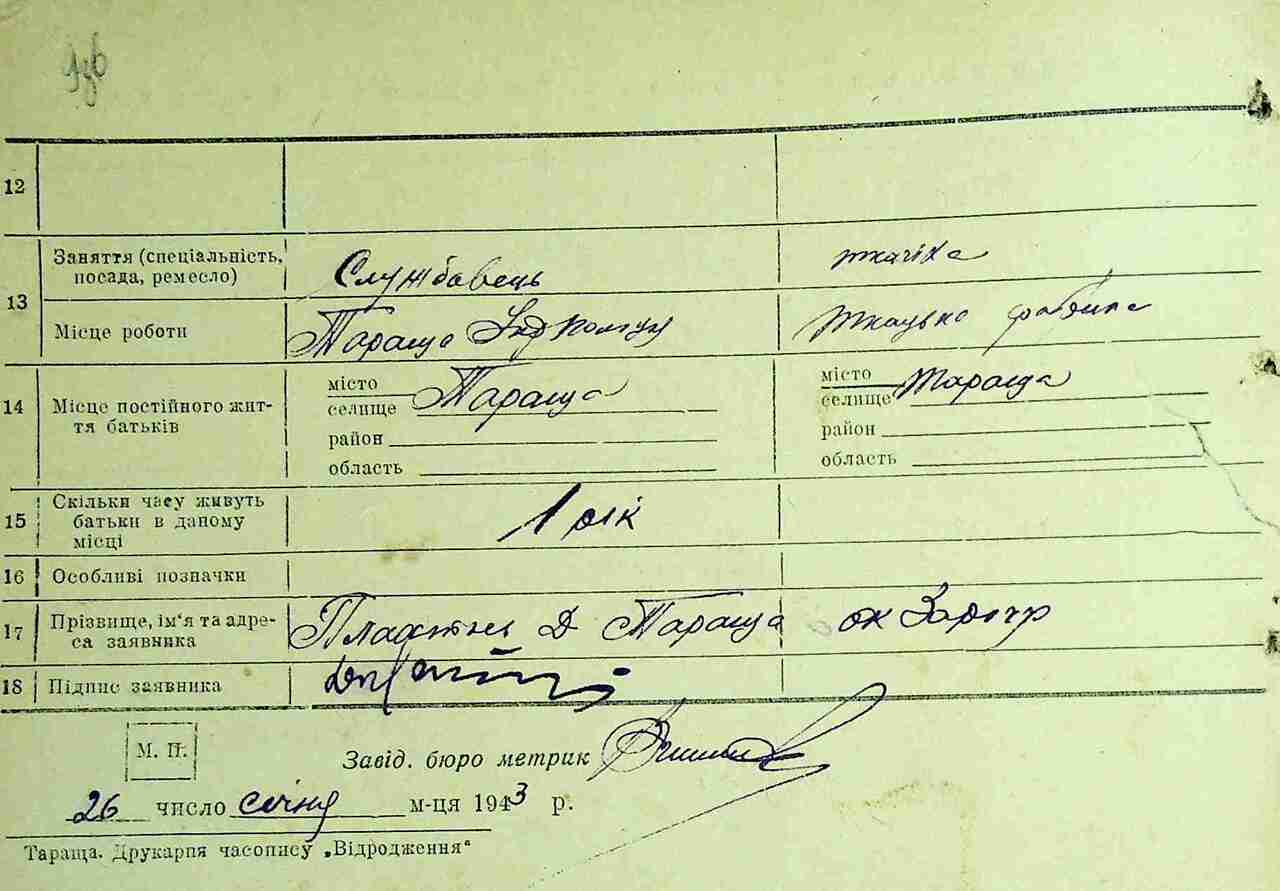 12
13
Заняття (спеціальність,
посада, ремесло)
Службавець
ткачіха
Місце роботи
Тараща
ткацька
14
Місце постійного жит-
тя батьків
місто
селище Тараща
район
область
місто
селище Тараща
район
область
15
Скільки часу живуть
батьки в даному
місці
1 рік
16 Особливі позначки
17
Прізвище, ім'я та адре-
са заявника
Д Тараща
18 Підпис заявника
М. П.
Завід. бюро метрик
26 число січня м-ця 1943 р.
Тараща. Друкарня часопису „Відродження"